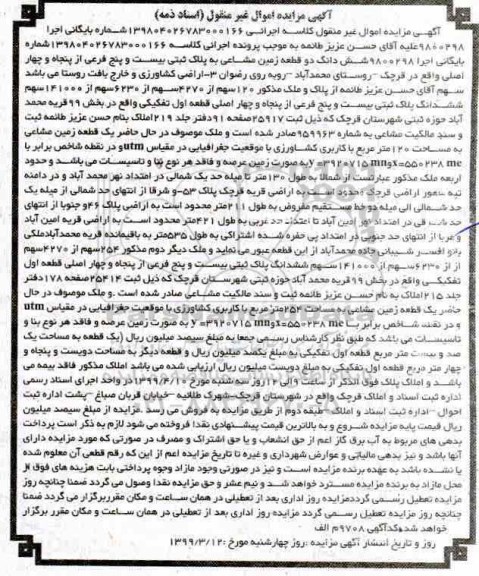 آگهی مزایده اموال غیر منقول (اسناد ذمه)
آگهی مزایده اموال غیر منقول کلاسه اجرائی ۱۳۹۸۰۴۰۲۶۷۸۳۰۰۰۱۶۶ شماره بایگانی اجرا
۹۸۰۰۲۹۸ علیه آقای حسن عزیز طائمه به موجب پرونده اجرائی کلاسه ۱۳۹۸۰۴۰۲۶۷۸۳۰۰۰۱۶۶ شماره
بایگانی اجرا ۹۸۰۰۲۹۸ شش دانگ دو قطعه زمین مشاعی به پلاک ثبتی بیست و پنج فرعی از پنجاه و چهار
اصلی واقع در قرچک – روستای محمدآباد – روبه روی رضوان ۳- اراضی کشاورزی و خارج بافت روستا می باشد
سهم آقای حسن عزیز طائمه از پلاک و ملک مذکور ۱۲۰ سهم از ۴۲۷۰ سهم از ۶۲۳۰ سهم از ۱۴۱۰۰۰ سهم
ششدانگ پلاک ثبتی بیست و پنج فرعی از پنجاه و چهار اصلی قطعه اول تفکیکی واقع در بخش ۹۹ قریه محمد
آباد حوزه ثبتی شهرستان قرچک که ذیل ثبت ۲۵۹۱۷ صفحه ۹۱ دفتر جلد ۲۱۹ املاک بنام حسن عزیز طائمه ثبت
و سند مالکیت مشاعی به شماره ۹۵۹۹۶۳ صادر شده است و ملک موصوف در حال حاضر یک قطعه زمین مشاعی
به مساحت ۱۲۰ متر مربع با کاربری کشاورزی با موقعیت جغرافیایی در مقیاس utm و در نقطه شاخص برابر با
x=۵۵۰۲۳۸ mc و y=۳۹۲۰۷۱۵ mn به صورت زمین عرصه و فاقد هر نوع بنا و تاسیسات می باشد و حدود
اربعه ملک مذکور عبارتست از شمالا به طول ۱۳۰ متر تا میله حد یک شمالی در امتداد نهر محمد آباد و در دامنه
تپه سعور اراضی قرچک محدود است به اراضی قریه قرچک پلاک ۵۳- و شرقا از انتهای حد شمالی از میله یک
حد شمالی الی میله دو خط مستقیم مفروض به طول ۲۱۱ متر محدود است به اراضی پلاک ۴۶ و جنوبا از انتهای
حد شرقی در امتداد امین آباد تا امتداد حد غربی به طول ۴۲۱ متر محدود است به اراضی قریه امین آباد
و غربا از انتهای حد جنوبی در امتداد پی حفره شده اشتراکی به طول ۵۳۵ متر به باقیمانده قریه محمدآباد ملکی
بانو افسر شیبانی جاده محمدآباد از این قطعه عبور می نماید و ملک دیگر دوم مذکور ۲۵۴ سهم از ۴۲۷۰ سهم
از ۶۲۳۰ سهم از ۱۴۱۰۰۰ سهم ششدانگ پلاک ثبتی بیست و پنج فرعی از پنجاه و چهار اصلی قطعه اول
تفکیکی واقع در بخش ۹۹ قریه محمد آباد حوزه ثبتی شهرستان قرچک که ذیل ثبت ۲۵۴۱۴ صفحه ۱۷۸ دفتر
جلد ۲۱۵ املاک به نام حسن عزیز طائمه ثبت و سند مالکیت مشاعی صادر شده است. و ملک موصوف در حال
حاضر یک قطعه زمین مشاعی به مساحت ۲۵۴ متر مربع با کاربری کشاورزی با موقعیت جغرافیایی در مقیاس utm
و در نقطه شاخص برابر با x=۵۵۰۲۳۸ mc و y=۳۹۲۰۷۱۵ mn به صورت زمین عرصه و فاقد هر نوع بنا و
تاسیسات می باشد که طبق نظر کارشناس رسمی جمعا به مبلغ سیصد میلیون ریال (یک قطعه به مساحت یک
صد و بیست متر مربع قطعه اول تفکیکی به مبلغ یکصد میلیون ریال و قطعه دیگر به مساحت دویست و پنجاه و
چهار متر مربع قطعه اول تفکیکی به مبلغ دویست میلیون ریال ارزیابی شده می باشد املاک مذکور فاقد بیمه می
باشد و املاک پلاک فوق الذکر از ساعت ۹ الی ۱۲ روز سه شنبه مورخ ۱۳۹۹/۴/۱۰ در واحد اجرای اسناد رسمی
اداره ثبت اسناد و املاک قرچک واقع در شهرستان قرچک- شهرک طلائیه – خیابان قربان صباغ – پشت اداره ثبت
احوال – اداره ثبت اسناد و املاک – طبقه دوم از طریق مزایده به فروش می رسد. مزایده از مبلغ سیصد میلیون
ریال قیمت پایه مزایده شروع و به بالاترین قیمت پیشنهادی نقدا فروخته می شود لازم به ذکر است پرداخت
بدهی های مربوط به آب برق گاز اعم از حق انشعاب و یا حق اشتراک و مصرف در صورتی که مورد مزایده دارای
آنها باشد و نیز بدهی مالیاتی و عوارض شهرداری و غیره تا تاریخ مزایده اعم از این که رقم قطعی آن معلوم شده
یا نشده باشد به عهده برنده مزایده است و نیز در صورتی وجود مازاد وجوه پرداختی بابت هزینه های فوق از
محل مازاد به برنده مزایده مسترد خواهد شد و نیم عشر و حق مزایده نقدا وصول می گردد ضمنا چنانچه روز
مزایده تعطیل رسمی گردد مزایده روز اداری بعد از تعطیلی در همان ساعت و مکان مقرر برگزار می گردد ضمنا
چنانچه روز مزایده تعطیل رسمی گردد مزایده روز اداری بعد از تعطیلی در همان ساعت و مکان مقرر برگزار
خواهد شد. کد آگهی ۹۷۰۸ م الف
روز و تاریخ انتشار آگهی مزایده: روز چهارشنبه مورخ: ۱۳۹۹/۳/۱۲